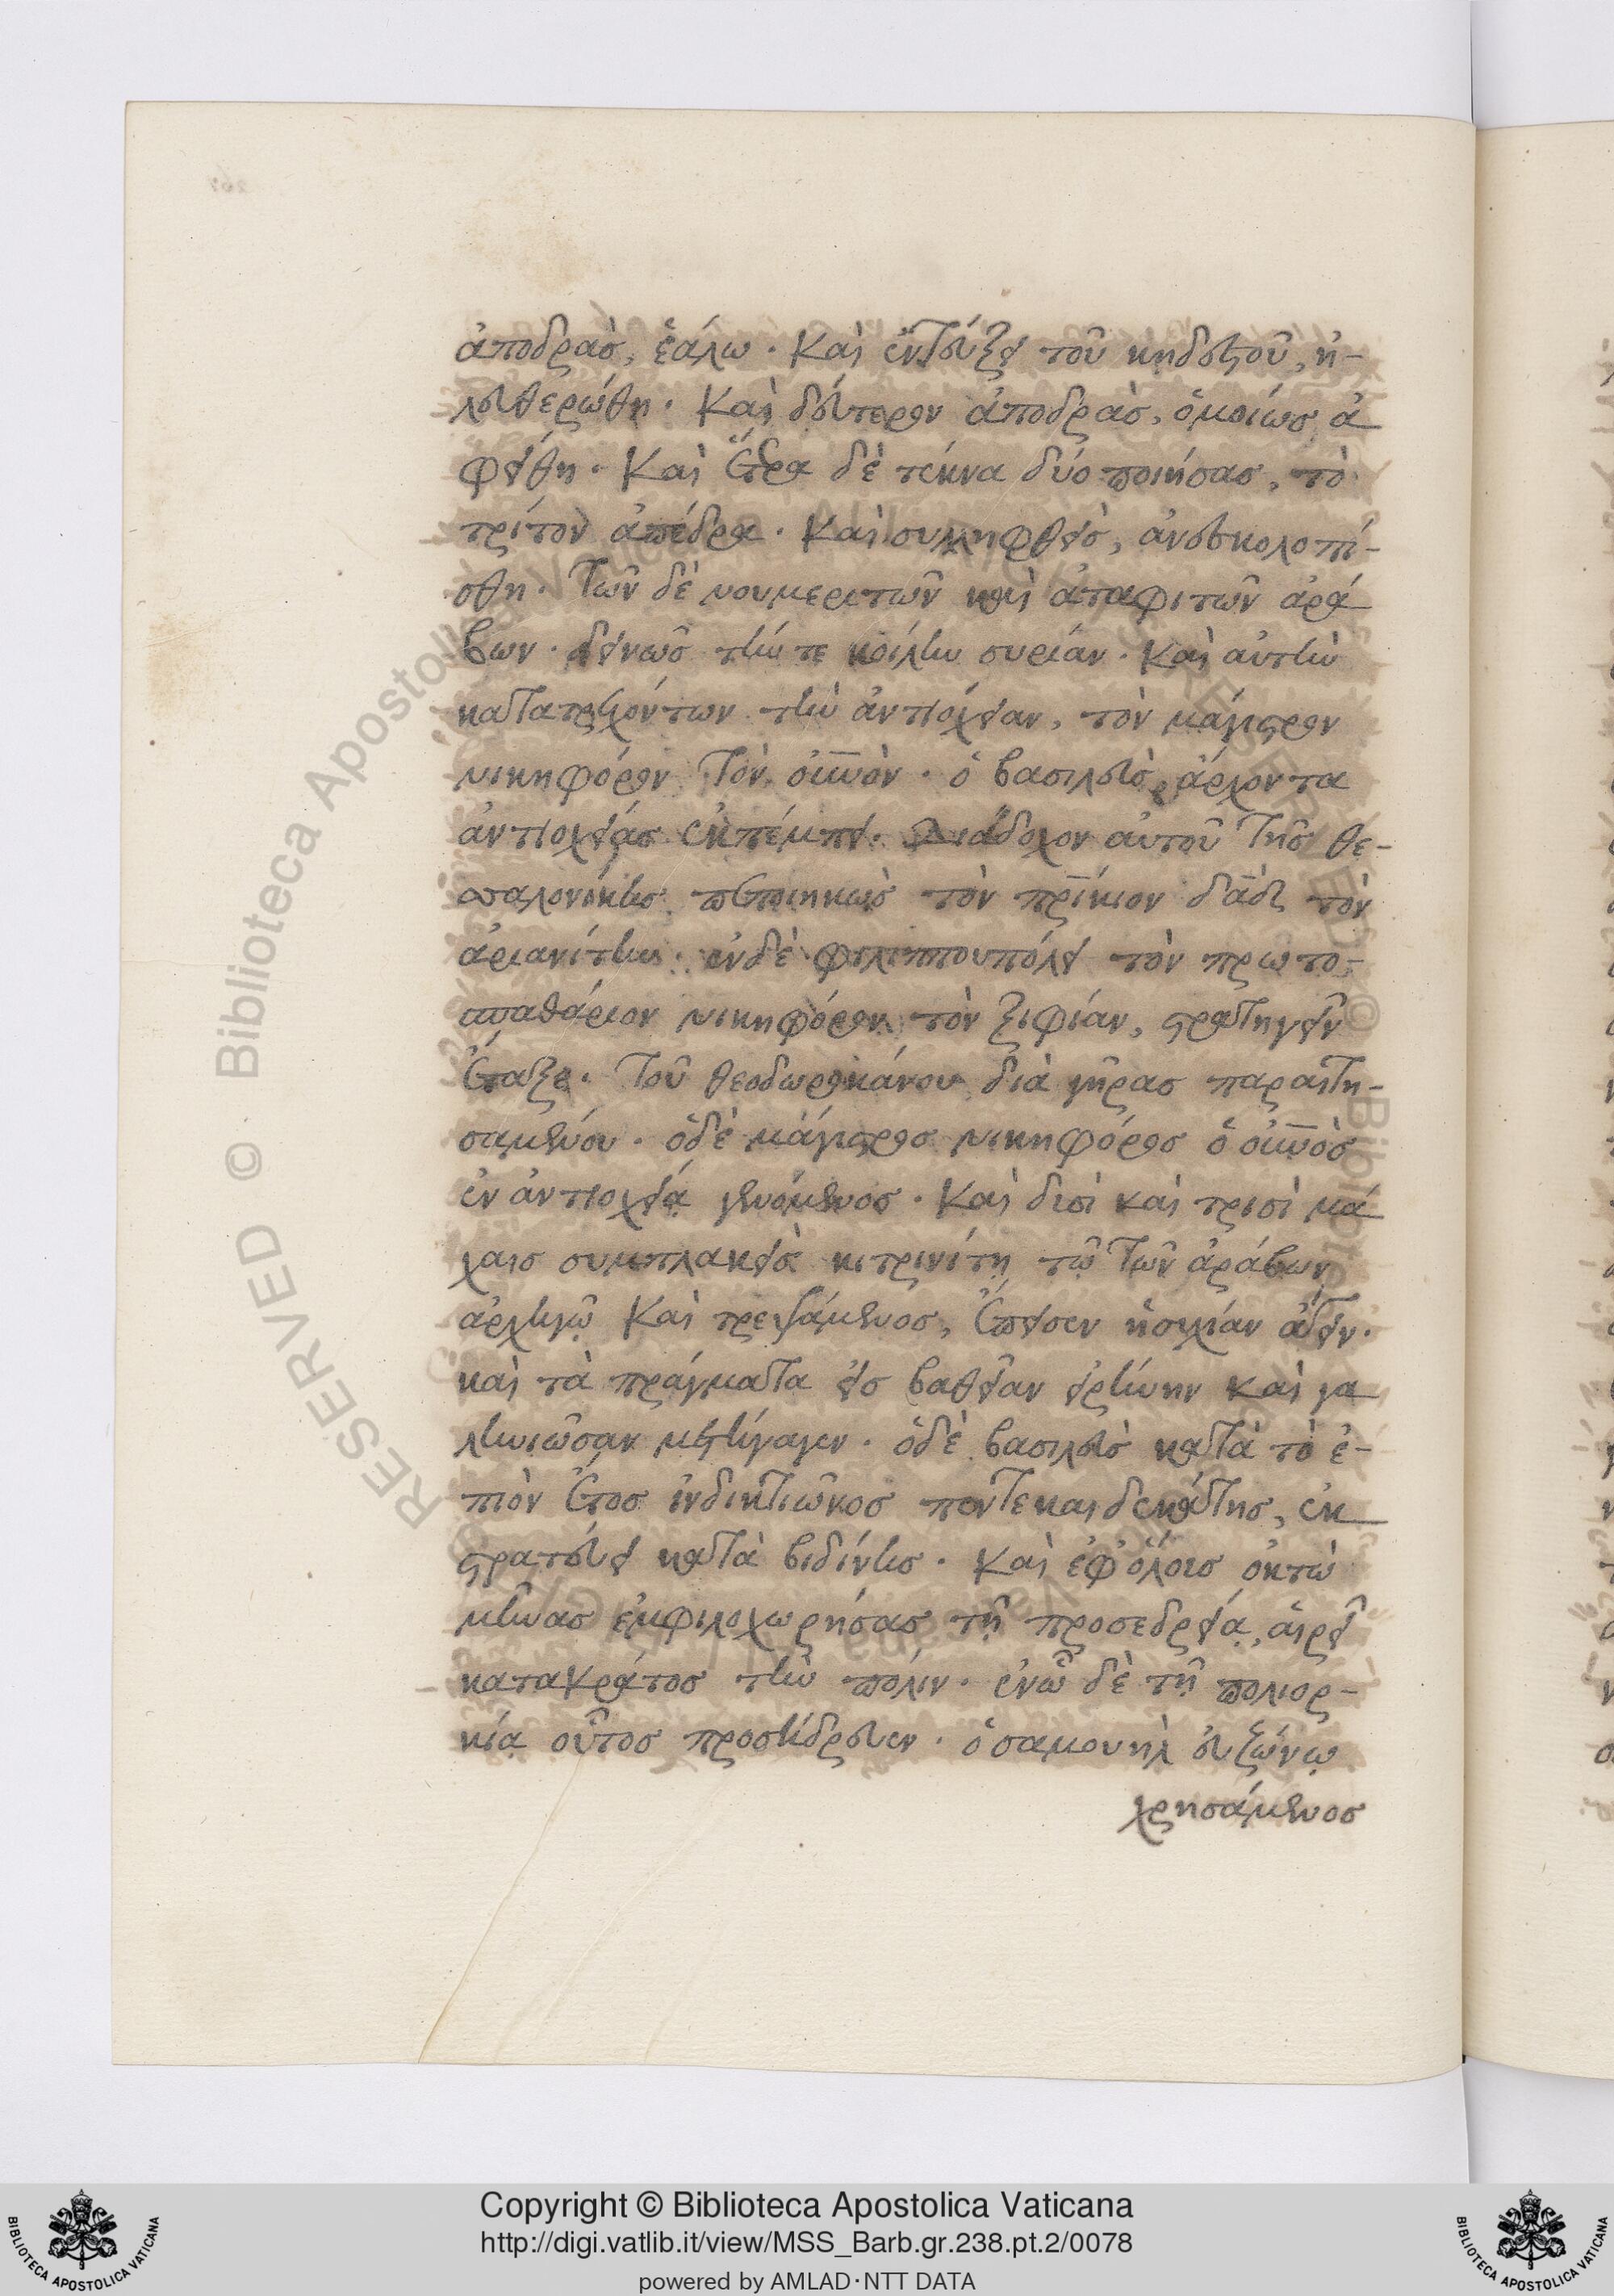 ἀποδρὰσ, ἑάλω. Καὶ ἐντεύξει τοῦ κηδεστοῦ, ἠ-
λευθερώθη. Καὶ δεύτερον ἀποδρὰσ, ὁμοίωσ ἀ
φείθη. Καὶ ἕτερα δὲ τέκνα δύο ποιήσασ, τὸ
τρίτον ἀπέδρα. Καὶ συλληφθεὶσ, ἀνεσκολοπί-
σθη. Τῶν δὲ νουμεριτῶν καὶ ἀταφιτῶν ἀρά
βων. δεινῶσ τήν τε κοίλην συρίαν. Καὶ αὐτὴν
κατατρεχόντων τὴν ἀντιόχειαν, τὸν μάγιστρον
νικηφόρον τὸν οὐ̅νὸν. ὁ βασιλεὺσ ἄρχοντα
ἀντιοχείασ ἐκπέμπει. Διάδοχον αὐτοῦ τῆσ θε-
σσαλονίκησ πεποιηκὼσ τὸν πρ̅ίκιον δα̅δ τὸν
ἀριανίτην. ἐν δὲ φιλιππουπόλει τὸν πρωτο-
σπαθάριον νικηφόρον τὸν ξιφίαν, στρατηγεῖν
ἔταξε. Τοῦ θεοδωροκάνου διὰ γῆρασ παραιτη-
σαμένου. ὁ δὲ μάγιστροσ νικηφόροσ ὁ οὐ̅νὸσ
ἐν ἀντιοχείᾳ γενόμενοσ. Καὶ δισὶ καὶ τρισὶ μά
χαισ συμπλακεὶσ κιτρινίτῃ τῷ τῶν ἀράβων
ἀρχηγῷ Καὶ τρεψάμενοσ, ἔπεισεν ἡσυχίαν ἄγειν.
καὶ τὰ πράγματα εἰσ βαθεῖαν εἰρήνην καὶ γα
ληνιῶσαν μετήγαγεν. ὁ δὲ βασιλεὺσ κατὰ τὸ ἐ-
πιὸν ἔτοσ ἰνδικτιῶνοσ πεντεκαιδεκάτησ, ἐκ
στρατεύει κατὰ βιδίνησ. Καὶ ἐφ' ὅλοισ ὀκτὼ
μῆνασ ἐμφιλοχωρήσασ τῇ προσεδρείᾳ, αἱρεῖ
κατακράτοσ τὴν πόλιν. ἐν ᾧ δὲ τῇ πολιορ-
κίᾳ οὗτοσ προσήδρευεν. ὁ σαμουὴλ εὐζώνῳ
χρησάμενοσ
Copyright © Biblioteca Apostolica Vaticana
http://digi.vatlib.it/view/MSS_Barb.gr.238.pt.2/0078
powered by AMLAD·NTT DATA